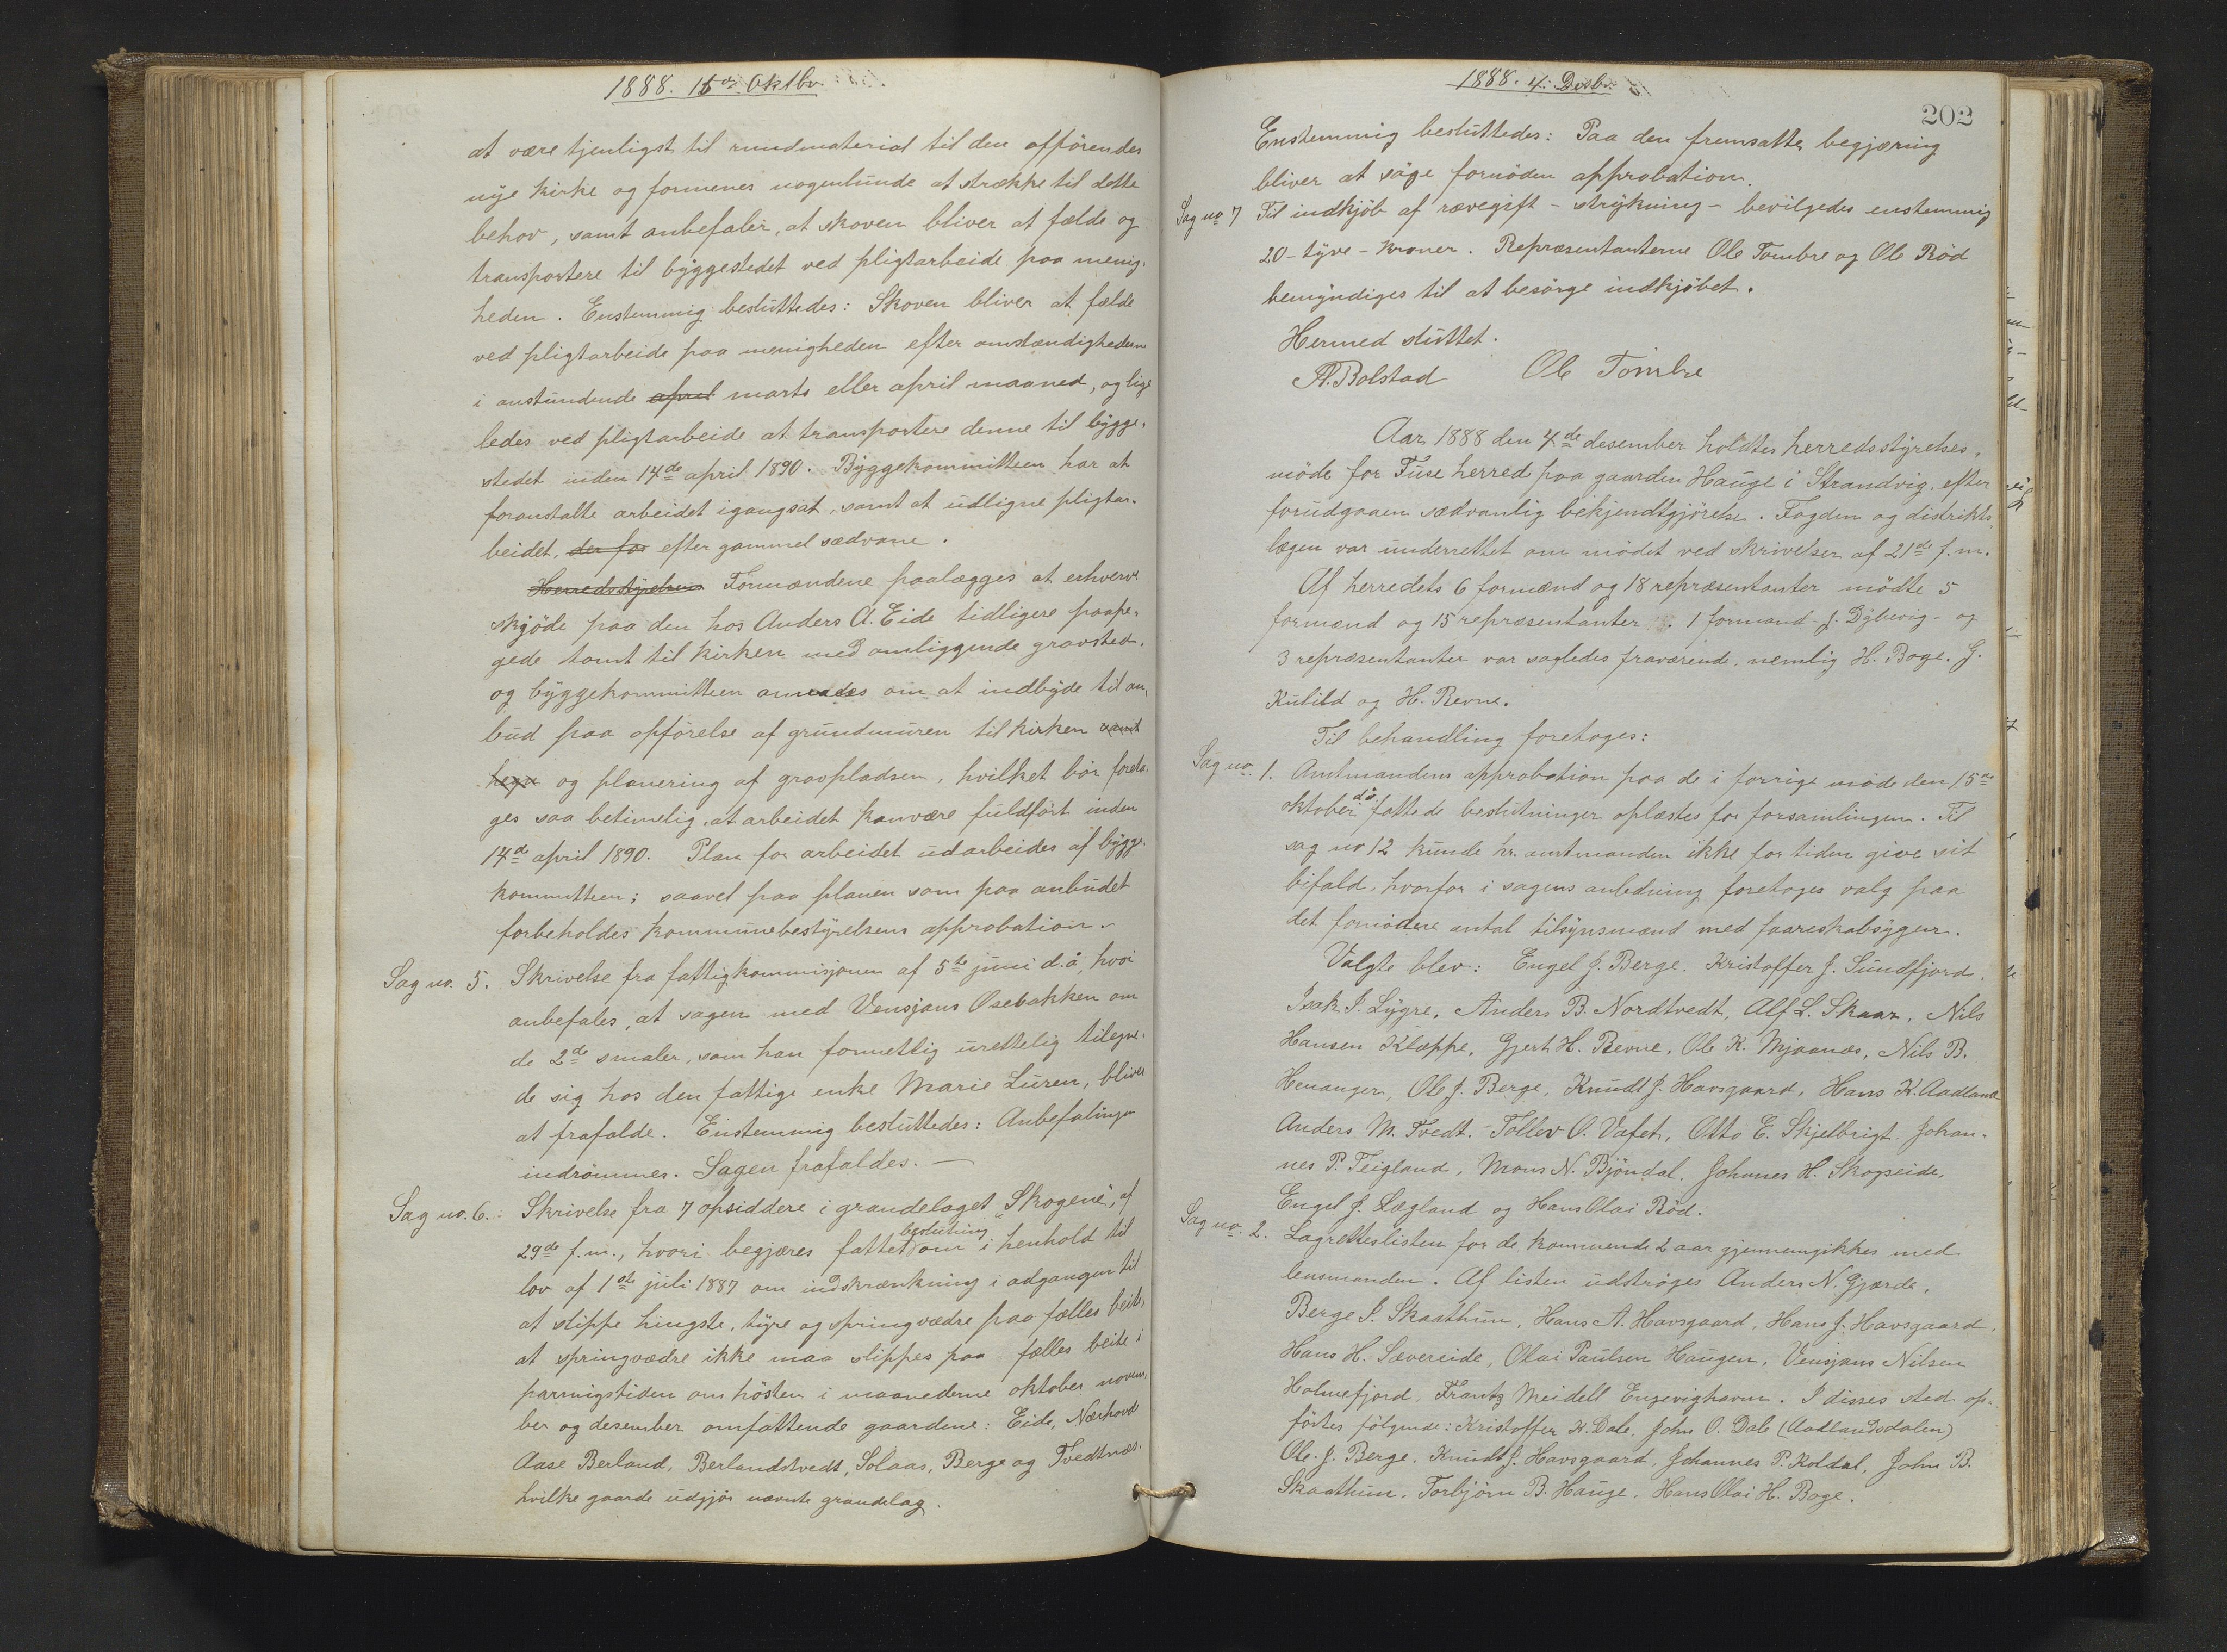 1888. 15de Oktbr.
at være tjenligst til rundmaterial til den opførendes
nye kirke og formenes nogenlunde at strække til dette
behov, samt anbefaler, at skoven bliver at fælde og
transportere til byggestedet ved pligtarbeide paa menig-
heden. Enstemmig besluttedes: Skoven bliver at fælde
ved pligtarbeide paa menigheden efter omstændighederne
i anstundende april marts eller april maaned, og lige
ledes ved pligtarbeide at transportere denne til bygge-
stedet inden 14de april 1890. Byggekommitteen har at
foranstalte arbeidet igangsat, samt at udligne pligtar-
beidet, der for efter gammel sædvane.
Herredsstyrelsen Formændene paalægges at erhverve
skjöde paa den hos Anders A. Eide tidligere paape-
gede tomt til kirken med omliggende gravsted,
og byggekommitteen anmodes om at indbyde til an-
bud paa opförelse af grundmuren til kirken samt
hegn og planering af gravpladsen, hvilket bör foreta-
ges saa betimelig, at arbeidet kan være fuldfört inden
14de april 1890. Plan for arbeidet udarbeides af bygge-
kommitteen; saavel paa planen som paa anbudet
forbeholdes kommunebestyrelsens approbation.
Sag no. 5. Skrivelse fra fattigkommisjonen af 5te juni d.å, hvori
anbefales, at sagen med Vensjans Osebakken om
de 2de smaler, som han formentlig urettelig tilegne-
de sig hos den fattige enke Marie Luren, bliver
at frafalde. Enstemmig besluttedes: Anbefalingen
indrömmes. Sagen frafaldes. —
Sag no. 6. Skrivelse fra 7 opsiddere i grandelaget "Skogene", af
29de f.m., hvori begjæres fattet beslutning om i henhold til
lov af 1ste juli 1887 om indskrænkning i adgangen til
at slippe hingste, tyre og springvædre paa fælles beite,
at springvædre ikke maa slippes paa fælles beite i
parringstiden om hösten i maanederne oktober novem-
ber og desember omfattende gaardene: Eide, Nærhovd
Aase Berland, Berlandstvedt, Solaas, Berge og Tvedtnæs.
hvilke gaarde udgjör nævnte grandelag.
1888. 4. Desbr.
202
Enstemmig besluttedes: Paa den fremsatte begjæring
bliver at söge fornöden approbation.
Sag no 7 Til indkjöb af rævegift - strykning - bevilgedes enstemmig
20 - tyve - kroner. Repræsentanterne Ole Tombre og Ole Röd
bemyndiges til at besörge indkjöbet.
Hermed sluttet.
A. Bolstad Ole Tombre
Aar 1888 den 4de desember holdtes herredsstyrelses-
möde for Fuse herred paa gaarden Hauge i Strandvig, efter
forudgaaen sædvanlig bekjendtgjörelse. Fogden og distrikts-
lægen var underrettet om mödet ved skrivelser af 21de f.m.
Af herredets 6 formænd og 18 repræsentanter mödte 5
formænd og 15 repræsentanter. 1 formand - J. Dybvig - og
3 repræsentanter var sagledes fraværende, nemlig H. Boge. G.
Kulild og H. Revne.
Til behandling foretoges:
Sag no. 1. Amtmandens approbation paa de i forrige möde den 15de
oktober då fattede beslutninger oplæstes for forsamlingen. Til
sag no 12 kunde hr. amtmanden ikke for tiden give sit
bifald, hvorfor i sagens anledning foretoges valg paa
det fornödne antal tilsynsmænd med faareskabsygen.
Valgte blev: Engel J. Berge. Kristoffer J. Sundfjord.
Isak I. Lygre, Anders B. Nordtvedt, Alf L. Skaar, Nils
Hansen Klæppe, Gjert H. Revne, Ole K. Mjaanæs, Nils B.
Henanger, Ole J. Berge, Knudt J. Havsgaard, Hans K. Aadland
Anders M. Tvedt. Tollev O. Vafet, Otto E. Skjelbrigt. Johan-
nes P. Teigland, Mons N. Bjöndal. Johannes H. Skogseide,
Engel J. Lægland og Hans Olai Röd.
Sag no. 2. Lagretteslisten for de kommende 2 aar gjennemgikkes med
lensmanden. Af listen udströges Anders N. Gjærde,
Berge I. Skaathun, Hans A. Havsgaard, Hans J. Havsgaard,
Hans H. Sævereide, Olai Paulsen Haugen, Vensjans Nilsen
Holmefjord, Frantz Meidell Engevighavn. I disses sted op-
förtes fölgende: Kristoffer K. Dale, John O. Dale (Aadlandsdalen)
Ole J. Berge. Knudt J. Havsgaard, Johannes P. Koldal, John B.
Skaathun. Torbjörn B. Hauge. Hans Olai H. Boge.